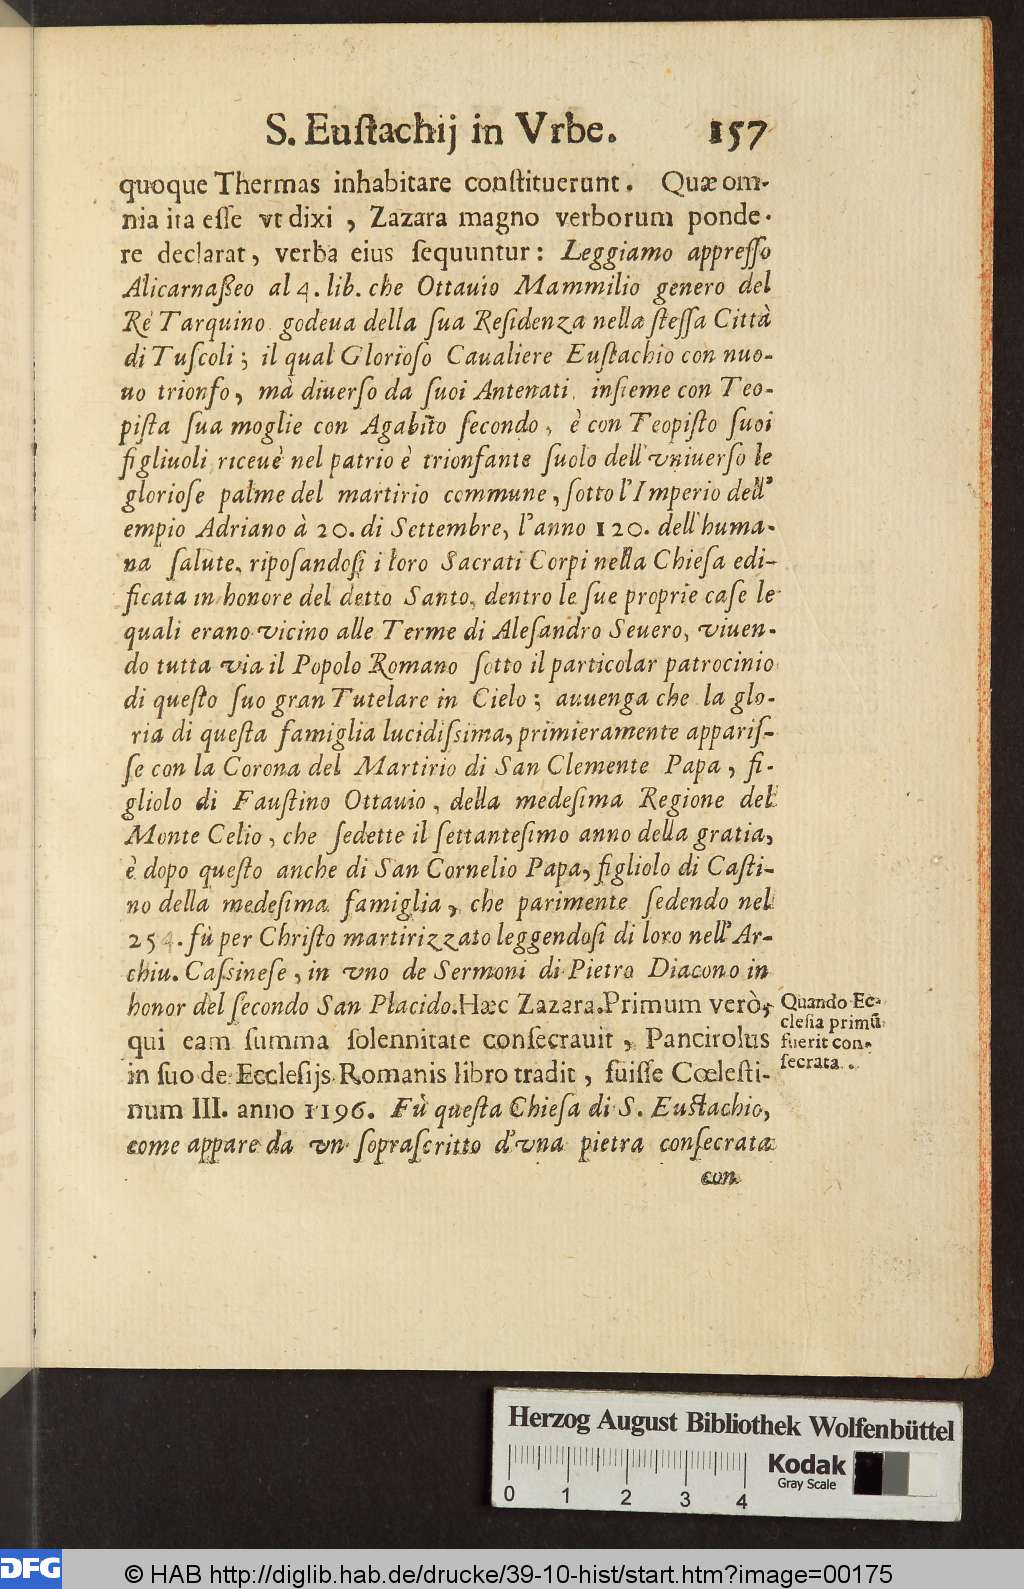 S. Euſtachij in Vrbe. 157
quoque Thermas inhabitare conſtituerunt. Quæ om-
nia ita eſſe vt dixi, Zazara magno verborum ponde-
re declarat, verba eius ſequuntur: Leggiamo appreſſo
Alicarnaßeo al 4. lib. che Ottauio Mammilio genero del
Rè Tarquino godeua della ſua Reſidenza nella ſteſſa Città
di Tuſcoli; il qual Glorioſo Caualiere Euſtachio con nuo-
uo trionfo, mà diuerſo da ſuoi Antenati, inſieme con Teo-
piſta ſua moglie con Agabito ſecondo, è con Teopiſto ſuoi
figliuoli riceuè nel patrio è trionfante ſuolo dell'vniuerſo le
glorioſe palme del martirio commune, ſotto l'Imperio dell'
empio Adriano à 20. di Settembre, l'anno 120. dell'huma-
na ſalute, ripoſandoſi i loro Sacrati Corpi nella Chieſa edi-
ficata in honore del detto Santo, dentro le ſue proprie caſe le
quali erano vicino alle Terme di Aleſandro Seuero, viuen-
do tutta via il Popolo Romano ſotto il particolar patrocinio
di queſto ſuo gran Tutelare in Cielo; auuenga che la glo-
ria di queſta famiglia lucidiſsima, primieramente appariſ-
ſe con la Corona del Martirio di San Clemente Papa, fi-
gliolo di Fauſtino Ottauio, della medeſima Regione del
Monte Celio, che ſedette il ſettanteſimo anno della gratia,
è dopo queſto anche di San Cornelio Papa, figliolo di Caſti-
no della medeſima famiglia, che parimente ſedendo nel
254. fù per Chriſto martirizzato leggendoſi di loro nell'Ar-
chiu. Caſsineſe, in vno de Sermoni di Pietro Diacono in
honor del ſecondo San Placido. Hæc Zazara. Primum verò,
qui eam ſumma ſolennitate conſecrauit, Pancirolus
in ſuo de Eccleſijs Romanis libro tradit, fuiſſe Cœleſti-
num III. anno 1196. Fù queſta Chieſa di S. Euſtachio,
come appare da vn ſopraſcritto d'vna pietra conſecrata
con
Quando Ec-
cleſia primū
fuerit con-
ſecrata.
Herzog August Bibliothek Wolfenbüttel
Kodak
Gray Scale
0 1 2 3 4
DFG © HAB http://diglib.hab.de/drucke/39-10-hist/start.htm?image=00175